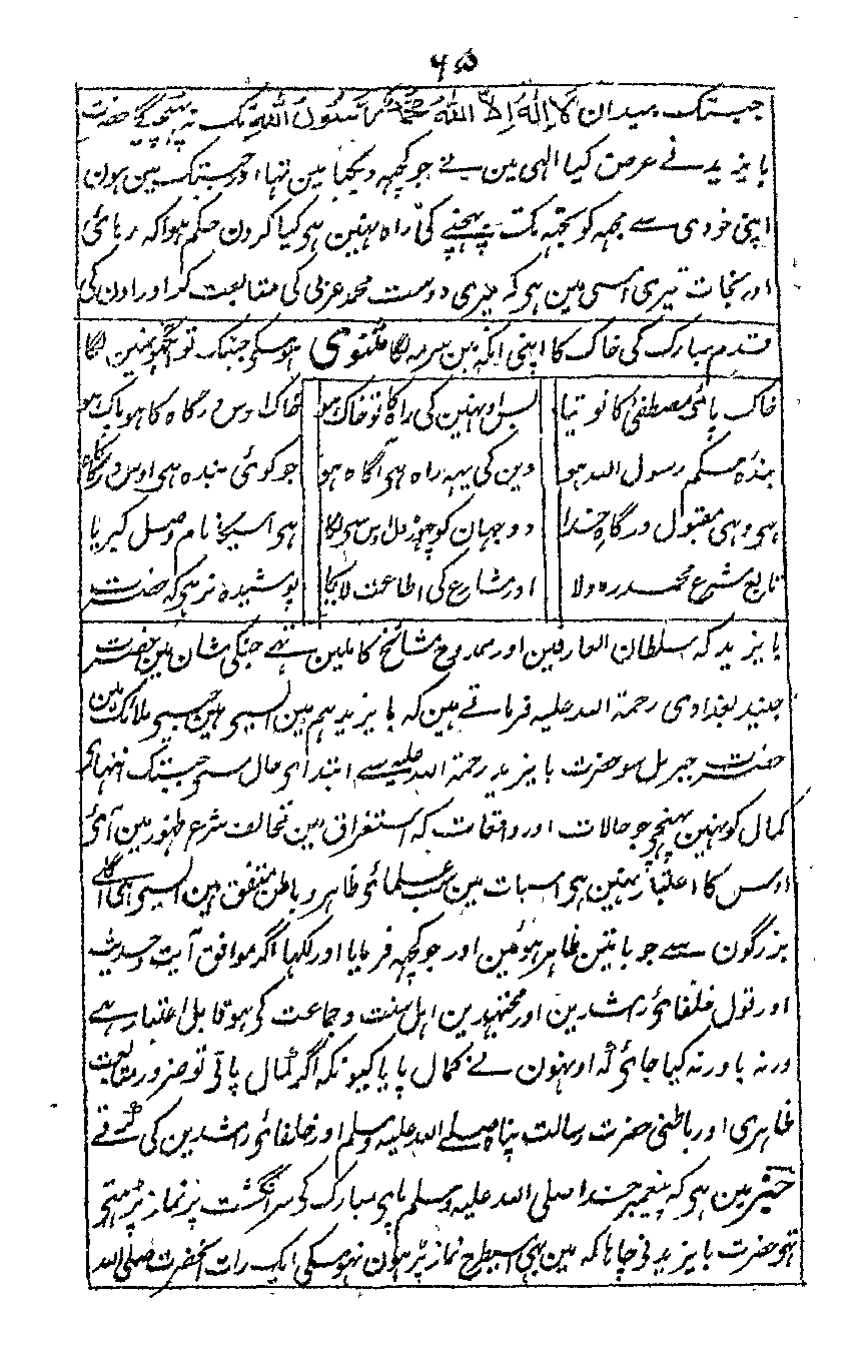 ۶۵
جبتک میدان لَا اِلٰهَ اِلَّا اللّٰهُ مُحَمَّدٌ رَّسُولُ اللّٰهِ تک نہ پہنچیگے حضرت
بایزید نے عرض کیا الہی مین نے جو کچہہ دیکہا مین تہا اور جبتک مین ہون
اپنی خودی سے مجہہ کو تجہہ تک پہنچنے کی راہ نہین ہی کیا کرون حکم ہوا کہ رہائی
اور نجات تیری اسی مین ہی کہ میری دوست محمد عربی کی متابعت کر اور اون کی
قدم مبارک کی خاک کا اپنی انکہہ مین سرمہ لگا مثنوی ہوسکی جبتک تو انجہو نہین لگا
خاک پائی مصطفیٰ کا توتیا بس اونہین کی راہ کا تو خاک ہو خاک اوس درگاہ کا ہو پاک ہو
بندہ حکم رسول اللہ ہو دین کی یہہ راہ ہی آگاہ ہو جو کوئی بندہ ہی اوس درگاہ کا
ہی وہی مقبول درگاہِ خدا دو جہان کو چہوڑ دل اوس سی لگا ہی اسیکا نام وصل کبریا
تابع شرع محمد رہ ولا اور شارع کی اطاعت لا بجا پوشیدہ نرہی کہ حضرت
بایزید کہ سلطان العارفین اور ممدوح مشائخ کاملین تہے جنکی شان مین حضرت
جنید بغدادی رحمۃ اللہ علیہ فرماتے ہین کہ بایزید ہم مین ایسی ہین جیسی ملائک مین
حضرت جبریل سو حضرت بایزید رحمۃ اللہ علیہ سے ابتدای حال سی جبتک انتہای
کمال کو نہین پہنچی جو حالات اور واقعات کہ استغراق مین مخالف شرع ظہور مین آئی
اوس کا اعتبار نہین ہی اسبات مین سب علمائی ظاہر و باطن متفق ہین ایسی ہی اگلے
بزرگون سے جو باتین ظاہر ہوئین اور جو کچہہ فرمایا اور لکہا اگر موافق آیت و حدیث
اور قول خلفائی راشدین اور مجتہدین اہل سنت و جماعت کی ہو قابل اعتبار ہے
ورنہ باور نہ کیا جائی کہ اونہون نے کمال پایا کیونکہ اگر کمال پاتی تو ضرور متابعت
ظاہری اور باطنی حضرت رسالت پناہ صلے اللہ علیہ وسلم اور خلفائی راشدین کی کرتے
خبر مین ہی کہ پیغمبر خدا صلی اللہ علیہ وسلم پای مبارک کی سر انگشت پر نماز پڑہتی
تہی حضرت بایزید نی چاہا کہ مین بہی اسیطرح نماز پڑہون نہوسکی ایک رات آنحضرت صلی اللہ